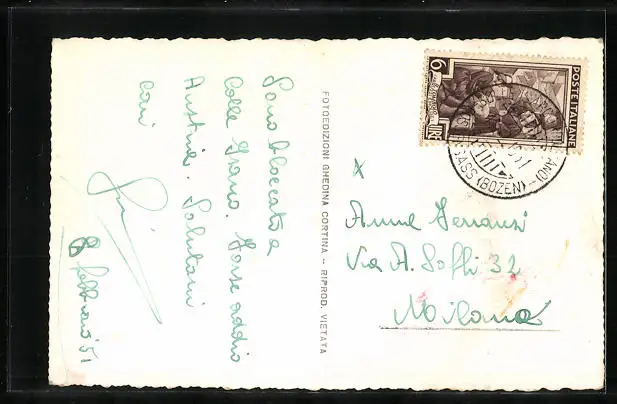 Sono bloccato a
Colle Isarco. Forse addio
Austria. Salutoni
cari
8 febbraio 51
FOTOEDIZIONI GHEDINA CORTINA - RIPROD. VIETATA
POSTE ITALIANE
6
LIRE
(BOZEN)
X
Via A. Saffi 32
Milano